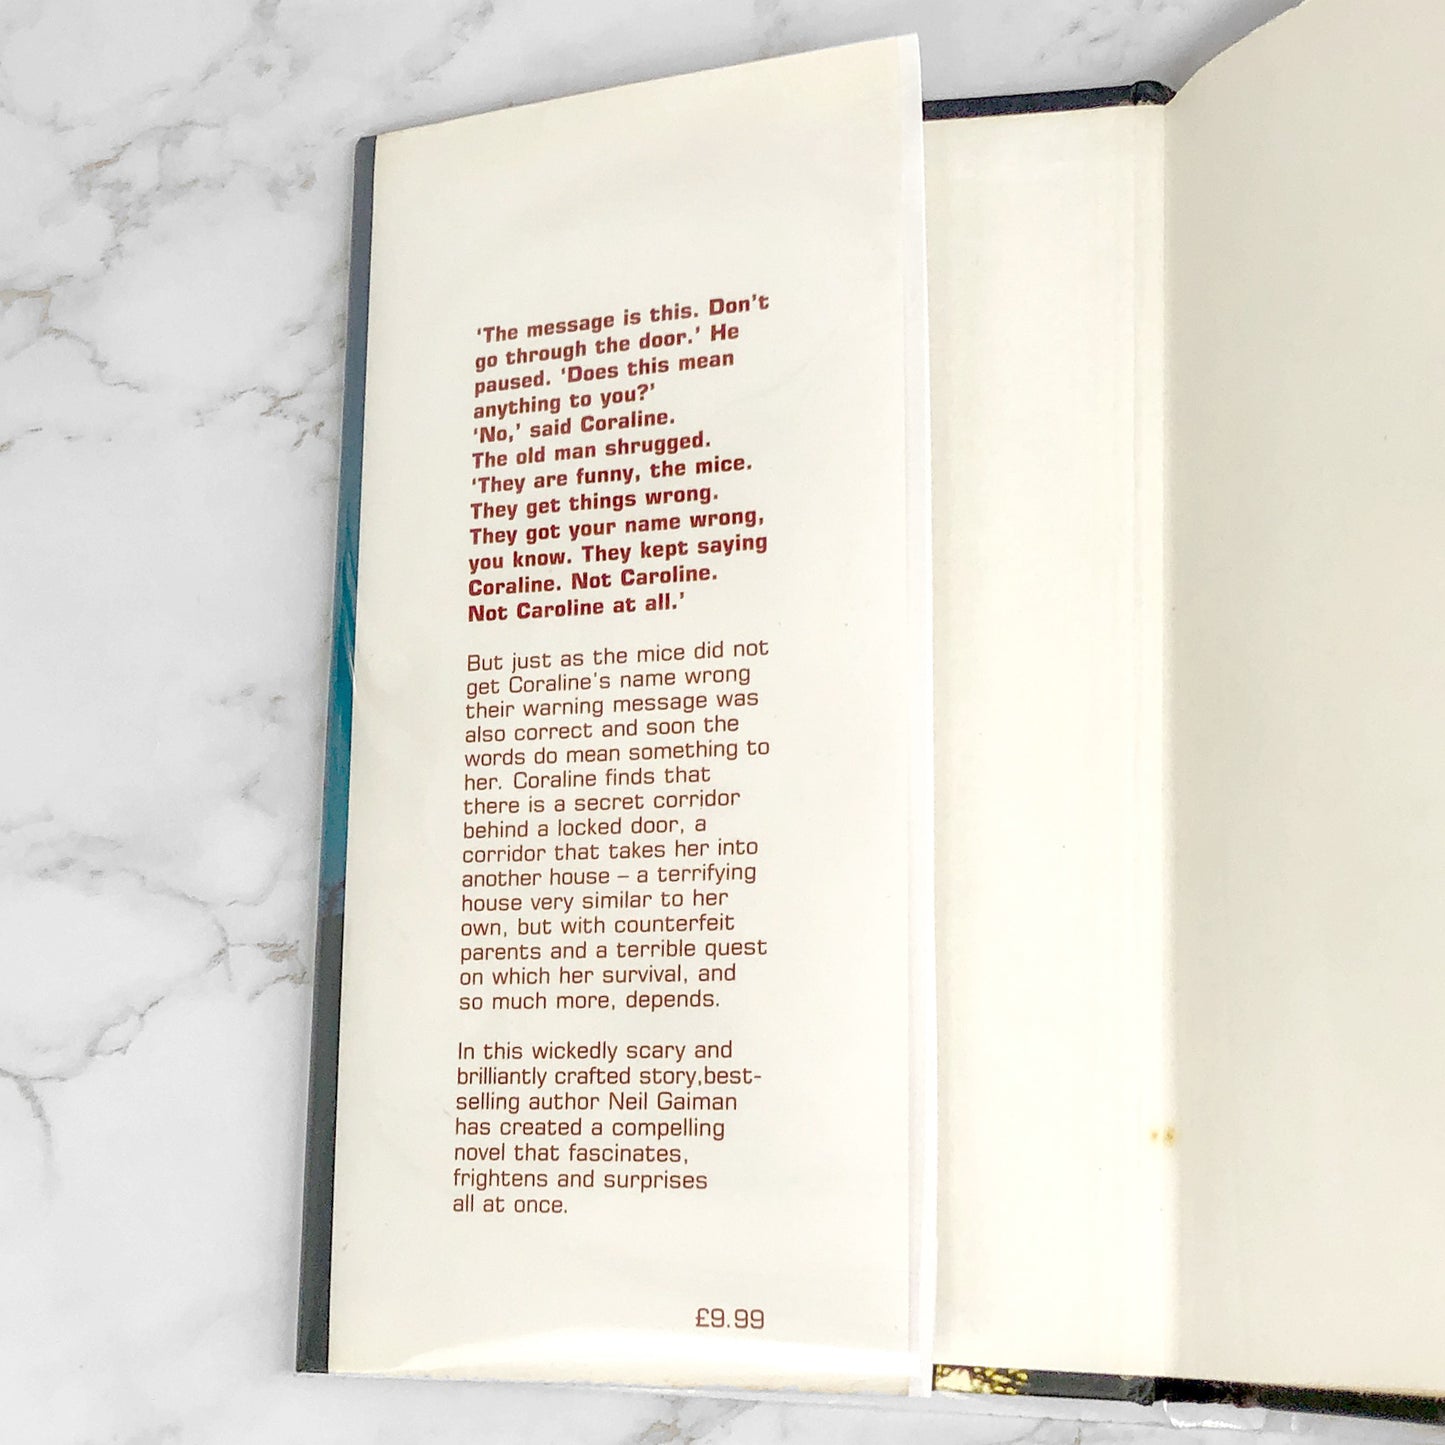 ‘The message is this. Don’t
go through the door.’ He
paused. ‘Does this mean
anything to you?’
‘No,’ said Coraline.
The old man shrugged.
‘They are funny, the mice.
They get things wrong.
They got your name wrong,
you know. They kept saying
Coraline. Not Caroline.
Not Caroline at all.’
But just as the mice did not
get Coraline's name wrong
their warning message was
also correct and soon the
words do mean something to
her. Coraline finds that
there is a secret corridor
behind a locked door, a
corridor that takes her into
another house – a terrifying
house very similar to her
own, but with counterfeit
parents and a terrible quest
on which her survival, and
so much more, depends.
In this wickedly scary and
brilliantly crafted story,best-
selling author Neil Gaiman
has created a compelling
novel that fascinates,
frightens and surprises
all at once.
£9.99